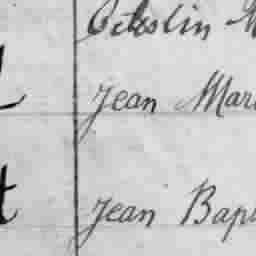 Celestin M
Jean Mari
Jean Bapt